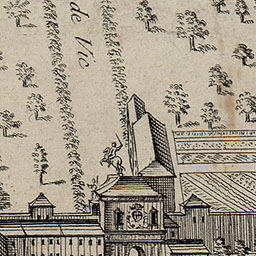 de Vic